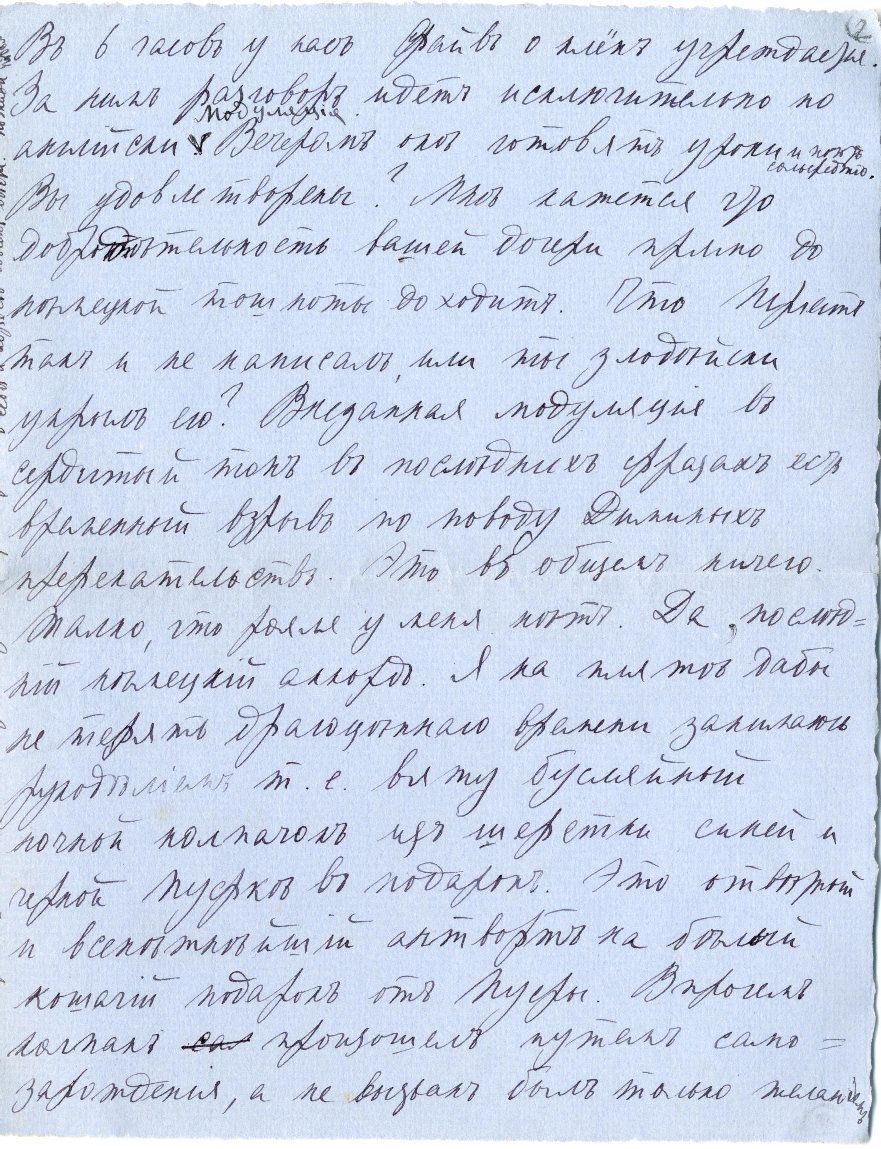 2
Въ 6 часовъ у насъ Файвъ о клёкъ учреждается.
За нимъ разговоръ идетъ исключительно по
модуляція
англійски V Вечеромъ онѣ готовятъ уроки и
Вы удовлетворены? Мнѣ кажется что
добродѣтельность вашей дочери прямо до
нѣмецкой тошноты доходитъ. Что
такъ и не написалъ, или ты злодѣйски
укрылъ его? Внезапная модуляція въ
сердитый тонъ въ послѣднихъ фразахъ есть
временный взрывъ по поводу Диминыхъ
пререкательствъ. Это въ общемъ ничего.
Жалко, что рояля у меня нѣтъ. Да, послѣд=
ній нѣмецкій аккордъ. Я на пляжѣ дабы
не терять драгоцѣннаго времени занимаюсь
рукодѣліемъ т. е. вяжу бусляйный
ночной колпачокъ изъ шерстки синей и
черной Пусркѣ въ подарокъ. Это отвѣтный
и всенѣжнѣйшій антвортъ на бѣлый
кошачій подарокъ отъ Пусры. Впрочемъ
колпакъ произошелъ путемъ само=
зарожденія, а не вызванъ былъ только желаніемъ